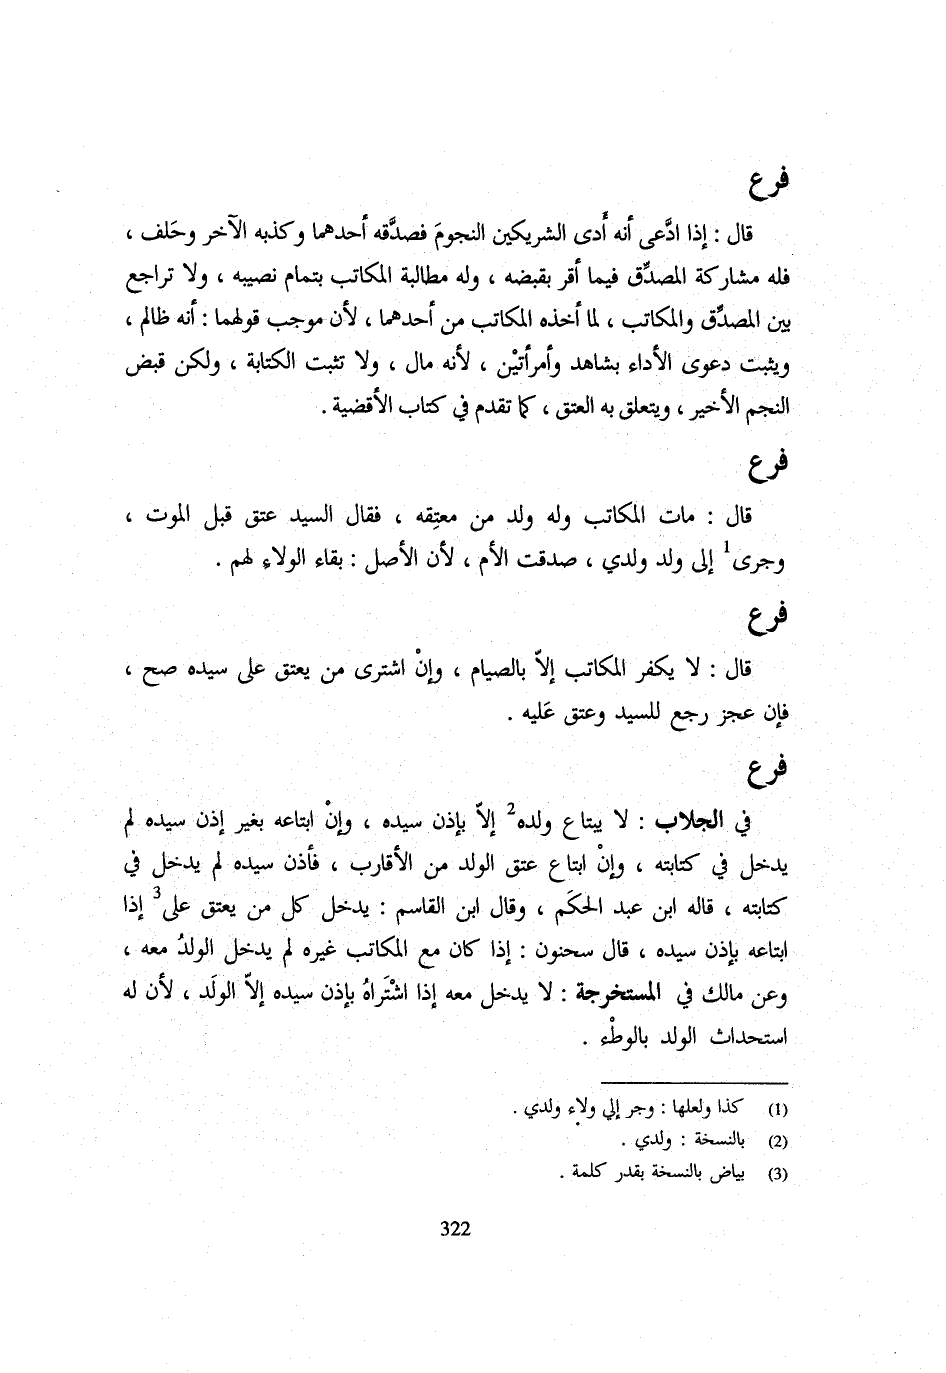 فرع
قال : إذا ادَّعى أنه أَدى الشريكين النجومَ فصدَّقه أحدهما وكذبه الآخر وحَلف ،
فله مشاركة المصدِّق فيما أقر بقبضه ، وله مطالبة المكاتب بتمام نصيبه ، ولا تراجع
بين المصدِّق والمكاتب ، لما أخذه المكاتب من أحدهما ، لأن موجب قولهما : أنه ظالم ،
ويثبت دعوى الأداء بشاهد وأمرأتيْن ، لأنه مال ، ولا تثبت الكتابة ، ولكن قبض
النجم الأخير ، ويتعلق به العتق ، كما تقدم في كتاب الأقضية .
فرع
قال : مات المكاتب وله ولد من معتِقه ، فقال السيد عتق قبل الموت ،
وجرى1 إلى ولد ولدي ، صدقت الأم ، لأن الأصل : بقاء الولاء لهم .
فرع
قال : لا يكفر المكاتب إلاّ بالصيام ، وإنْ اشترى من يعتق على سيده صح ،
فإن عجز رجع للسيد وعتق عَليه .
فرع
في الجلاب : لا يبتاع ولده2 إلاّ بإذن سيده ، وإنْ ابتاعه بغير إذن سيده لم
يدخل في كتابته ، وإنْ ابتاع عتق الولد من الأقارب ، فأذن سيده لم يدخل في
كتابته ، قاله ابن عبد الحكَم ، وقال ابن القاسم : يدخل كل من يعتق على3 إذا
ابتاعه بإذن سيده ، قال سحنون : إذا كان مع المكاتب غيره لم يدخل الولدُ معه ،
وعن مالك في المستخرجة : لا يدخل معه إذا اشْتَراهُ بإذن سيده إلاّ الولَد ، لأن له
استحداث الولد بالوطْء .
(1) كذا ولعلها : وجر إلي ولاء ولدي .
(2) بالنسخة : ولدي .
(3) بياض بالنسخة بقدر كلمة .
322